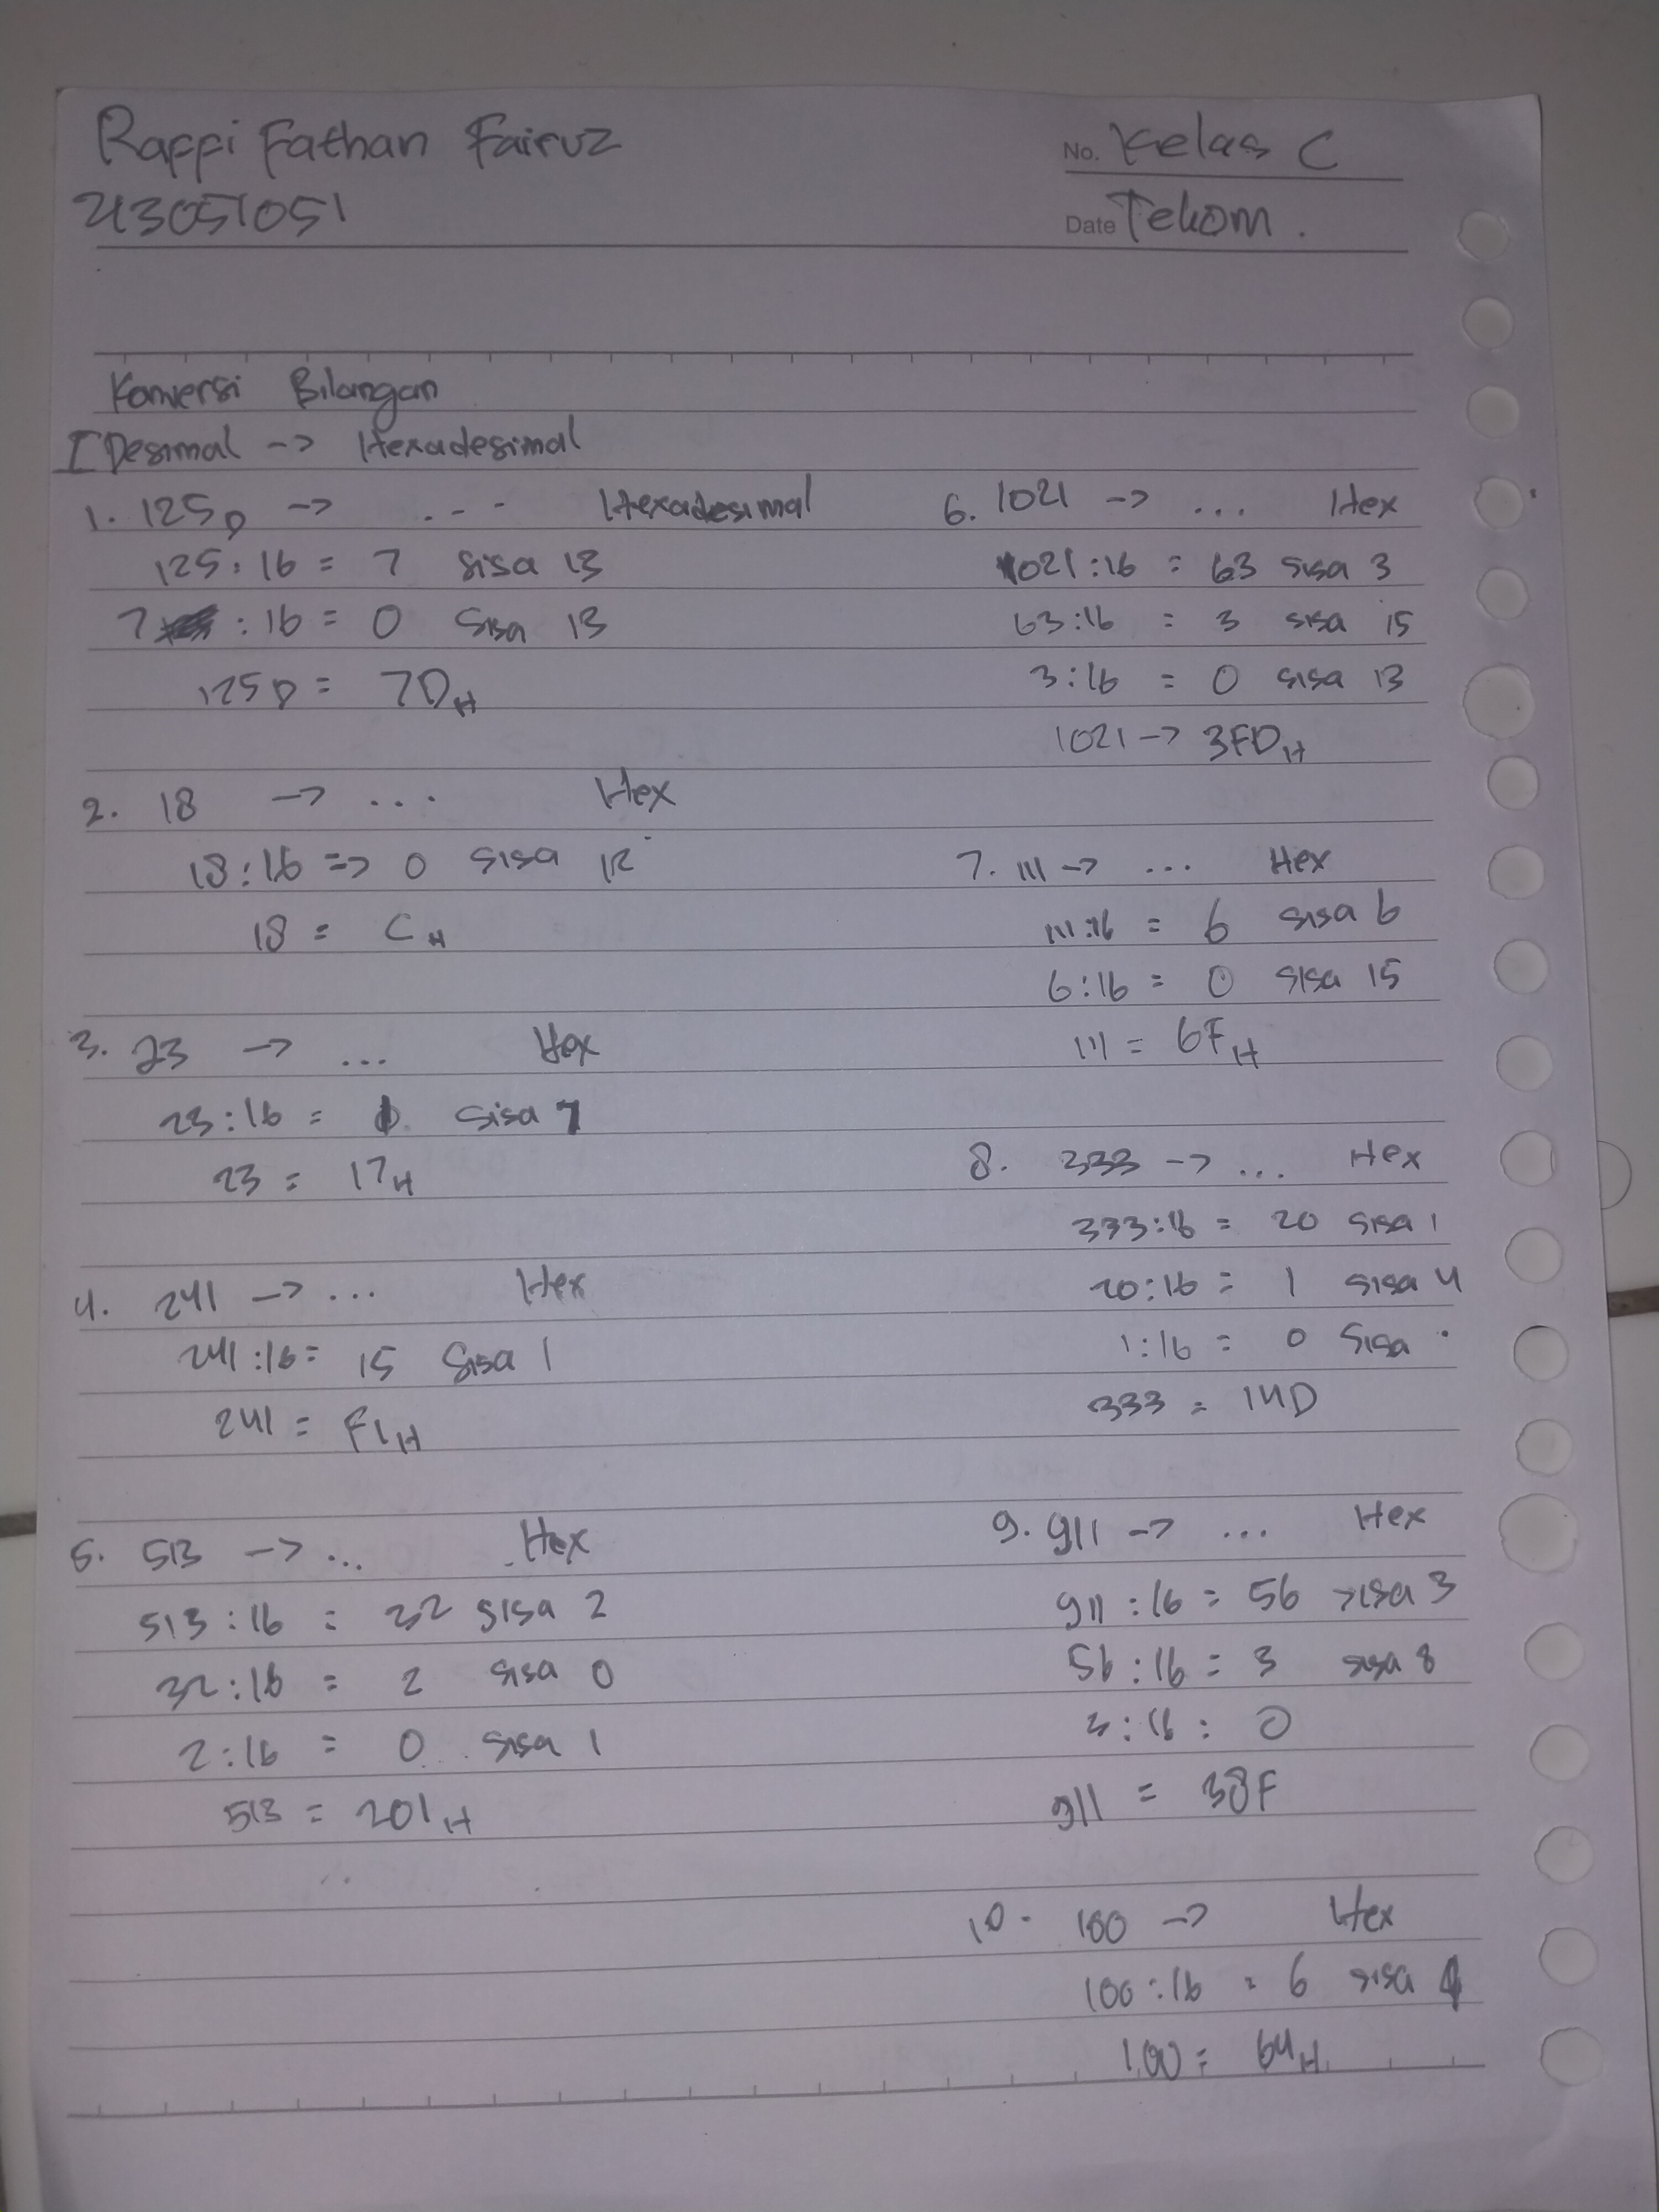 Raffi Fathan Fairuz
No. Kelas C
Date Tekom.
Konversi Bilangan
I Desimal -> Hexadesimal
1. 125D -> ... Hexadesimal
125 : 16 = 7 sisa 13
7 : 16 = 0 sisa 13
125D = 7DH
2. 18 -> ... Hex
18 : 16 => 0 sisa 12
18 = CH
3. 23 -> ... Hex
23 : 16 = 1 sisa 7
23 = 17H
4. 241 -> ... Hex
241 : 16 = 15 sisa 1
241 = F1H
5. 513 -> ... Hex
513 : 16 = 32 sisa 2
32 : 16 = 2 sisa 0
2 : 16 = 0 sisa 1
513 = 201H
6. 1021 -> ... Hex
1021 : 16 = 63 sisa 3
63 : 16 = 3 sisa 15
3 : 16 = 0 sisa 13
1021 -> 3FDH
7. 111 -> ... Hex
111 : 16 = 6 sisa 6
6 : 16 = 0 sisa 15
111 = 6FH
8. 333 -> ... Hex
333 : 16 = 20 sisa 1
20 : 16 = 1 sisa 4
1 : 16 = 0 sisa .
333 = 14D
9. 911 -> ... Hex
911 : 16 = 56 sisa 3
56 : 16 = 3 sisa 8
3 : 16 : 0
911 = 38F
10. 100 -> Hex
100 : 16 = 6 sisa 4
100 = 64H